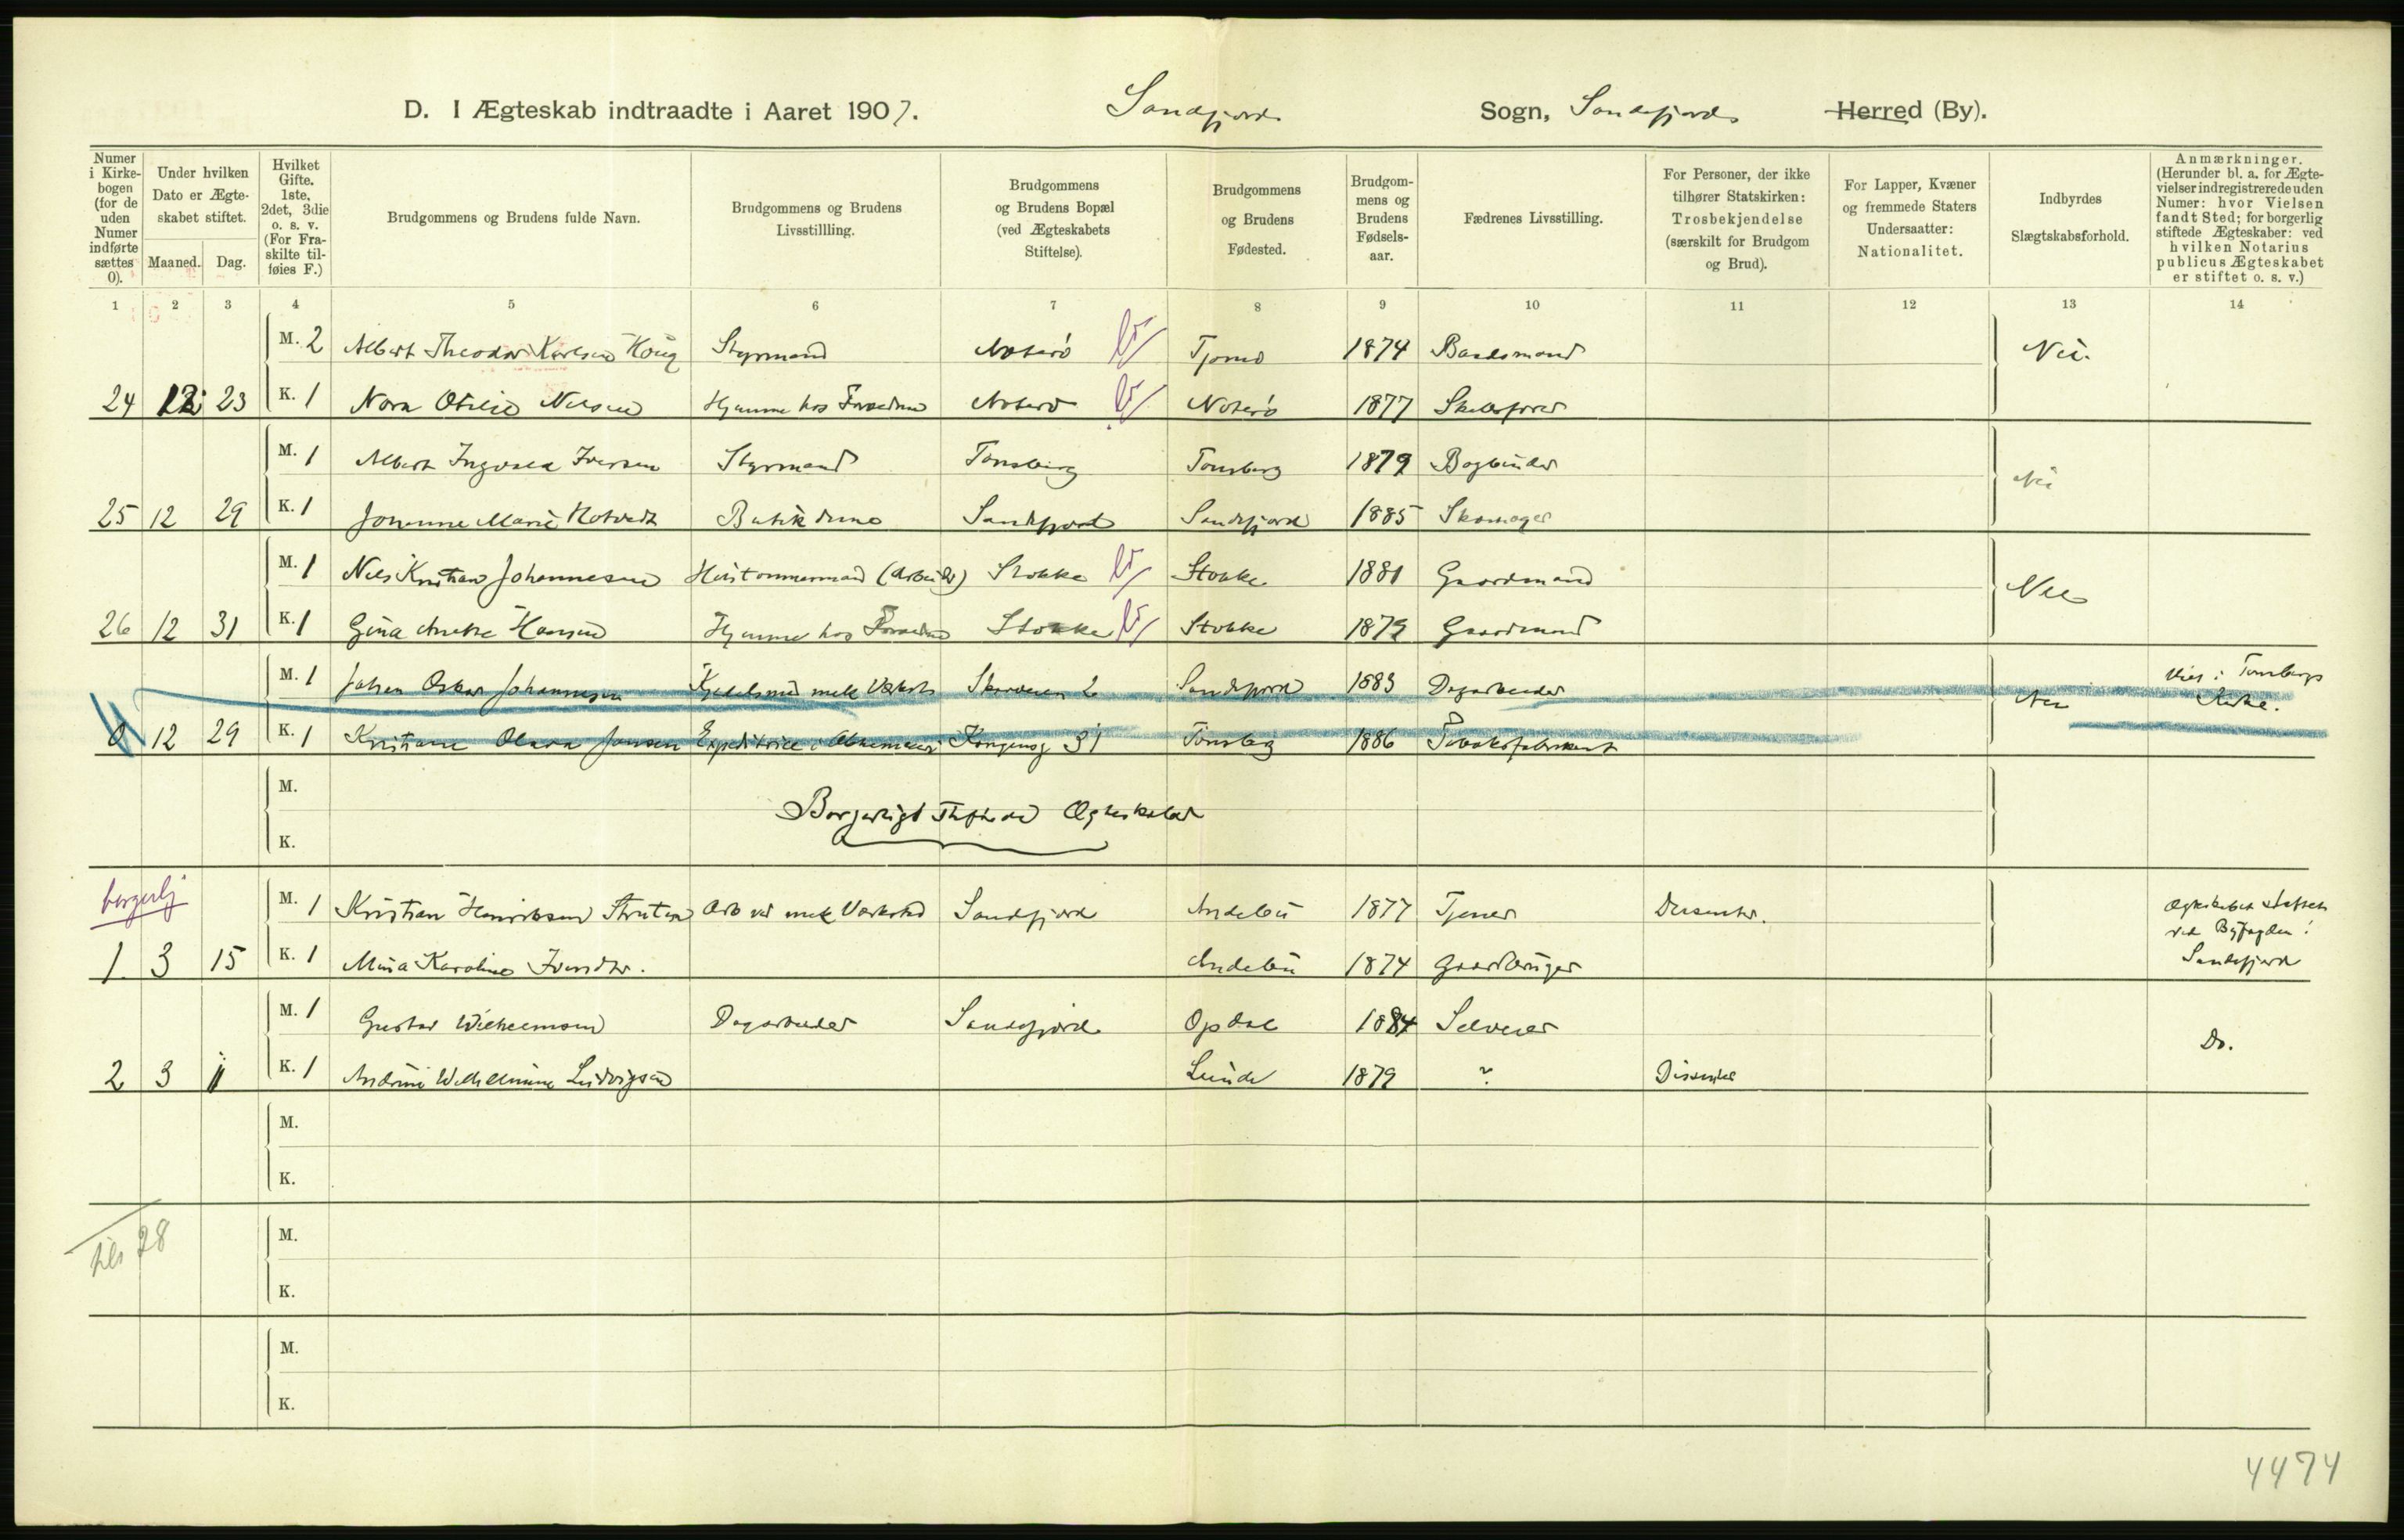 D. I Ægteskab indtraadte i Aaret 1907. Sandefjord Sogn, Sandefjords Herred (By).
Numer i Kirkebogen (for de uden Numer indførte sættes 0).
Under hvilken Dato er Ægteskabet stiftet.
Maaned. Dag.
Hvilket Gifte. 1ste, 2det, 3die o. s. v. (For Fraskilte tilføies F.)
Brudgommens og Brudens fulde Navn.
Brudgommens og Brudens Livsstillling.
Brudgommens og Brudens Bopæl (ved Ægteskabets Stiftelse).
Brudgommens og Brudens Fødested.
Brudgommens og Brudens Fødselsaar.
Fædrenes Livsstilling.
For Personer, der ikke tilhører Statskirken: Trosbekjendelse (særskilt for Brudgom og Brud).
For Lapper, Kvæner og fremmede Staters Undersaatter: Nationalitet.
Indbyrdes Slægtskabsforhold.
Anmærkninger. (Herunder bl. a. for Ægtevielser indregistrerede uden Numer: hvor Vielsen fandt Sted; for borgerlig stiftede Ægteskaber: ved hvilken Notarius publicus Ægteskabet er stiftet o. s. v.)
1 2 3 4 5 6 7 8 9 10 11 12 13 14
M. 2 Albert Theodor Karlsen Haug Styrmand Nøterø Tjømø 1874 Baadsmand Nei.
24 12 23 K. 1 Nora Otilie Nilsen Hjemme hos Forældrene Nøterø Nøterø 1877 Skibsfører
M. 1 Albert Ingvald Iversen Styrmand Tønsberg Tønsberg 1879 Bogbinder Nei
25 12 29 K. 1 Johanne Marie Hotvedt Butikdame Sandefjord Sandefjord 1885 Skomager
M. 1 Nils Kristian Johannesen Hustømmermand (Arbeider) Stokke Stokke 1881 Gaardmand Nei
26 12 31 K. 1 Gina Anette Hansen Hjemme hos Forældrene Stokke Stokke 1879 Gaardmand
M. 1 Johan Oskar Johannesen Kjedelsmed mek Værksted 2 Sandefjord 1883 Dagarbeider Nei Viet i Tønsbergs Kirke.
0 12 29 K. 1 Kristiane Olava Jansen Kongensg 31 Tønsberg 1886 Tobaksfabrikant
M.
Borgerligt stiftede Ægteskaber
K.
borgerlig
M. 1 Kristian Henriksen Arb ved mek Værksted Sandefjord Andebu 1877 Tjener Dissenter. Ægteskabet stiftet ved Byfogden i Sandefjord
1 3 15 K. 1 Mina Karoline Iversdtr. Andebu 1874 Gaardbruger
M. 1 Gustav Wilhelmsen Dagarbeider Sandefjord Opdal 1884 Selveier Do.
2 3 11 K. 1 Andrine Wilhelmine Ludvigsen Lunde 1879 ? Dissenter
M.
K.
tils 28
M.
K.
M.
K.
4474